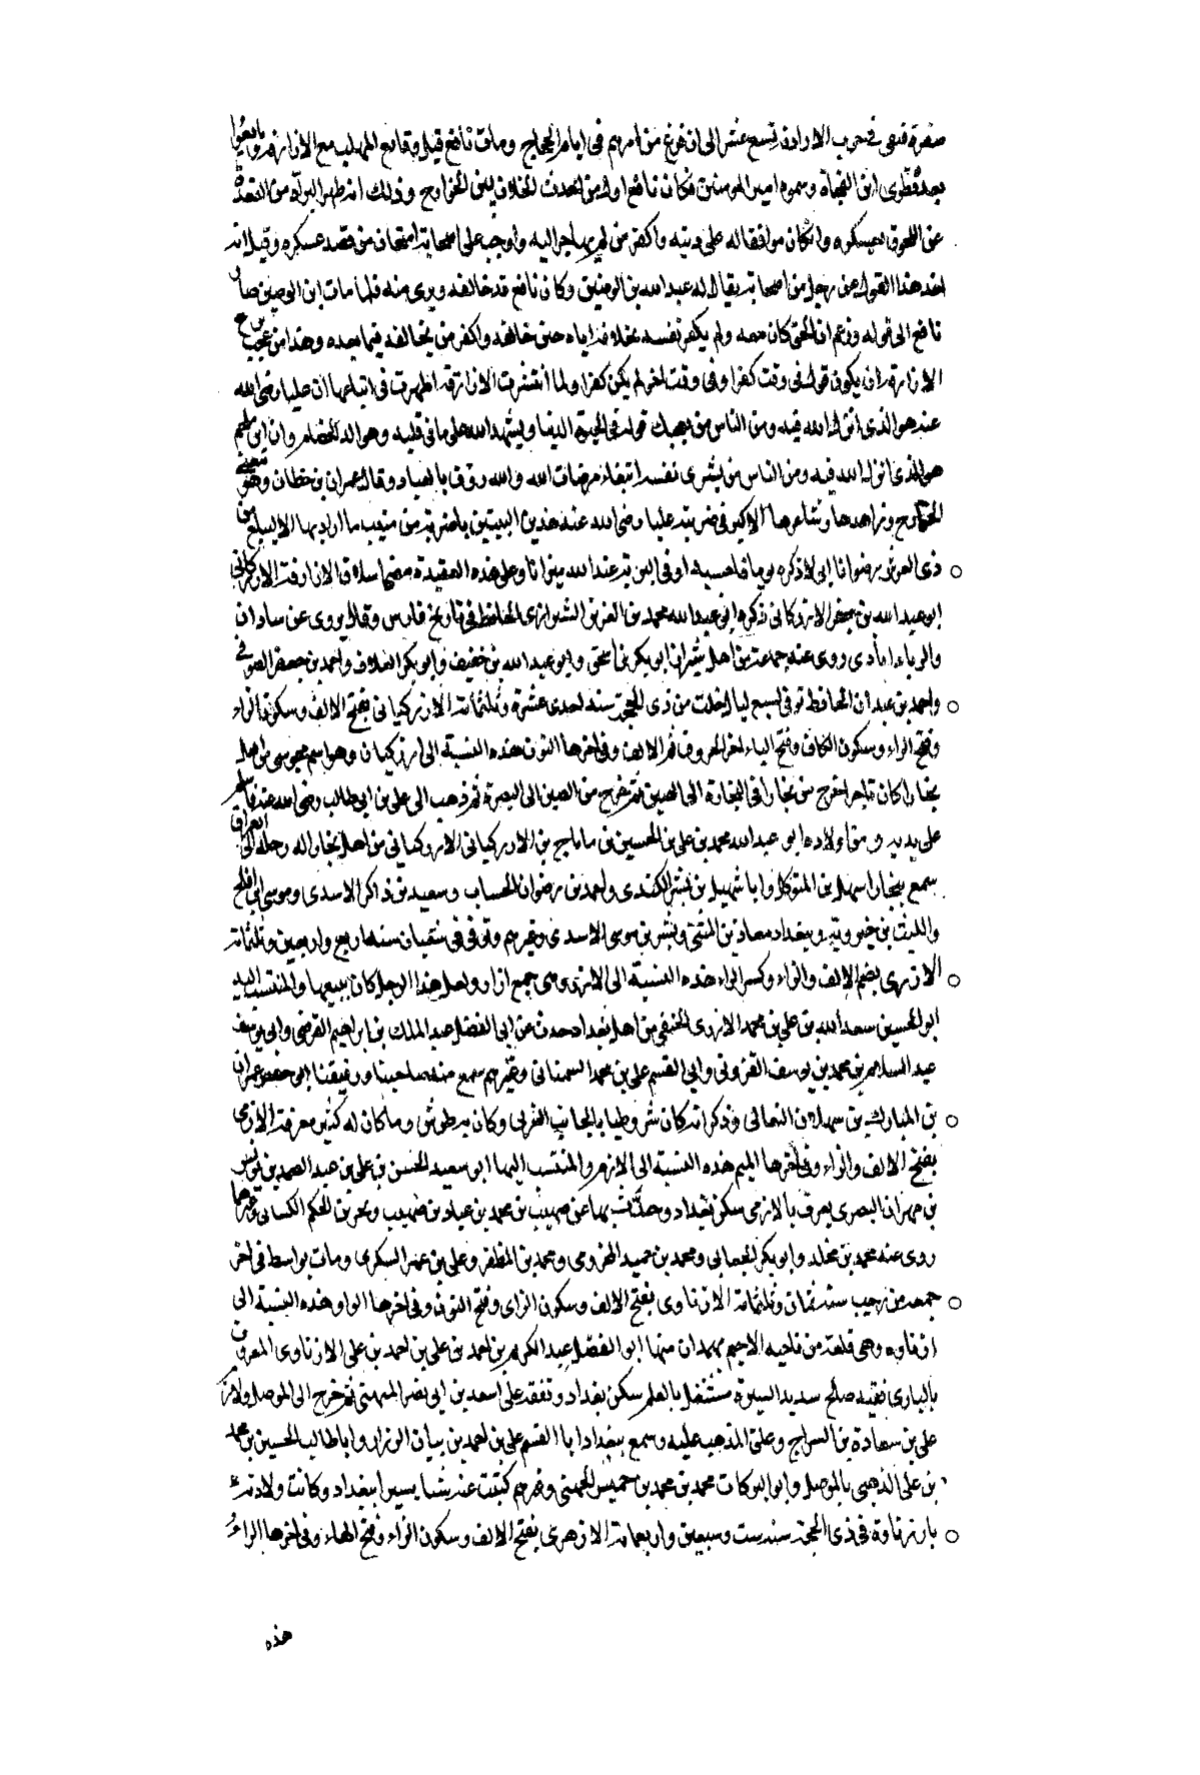 صفرة فبقى في حرب الازارقة تسع عشر الى ان فرغ من امرهم في ايام الحجاج ومات نافع قبل وقائع المهلب مع الازارقة وبايعوا
بعده قطرى ابن الفجاة وسموه امير المومنين فكان نافع اول من احدث الخلاف بين الخوارج وذلك انه اظهر البراة من القعدة
عن اللحوق بعسكره وان كان موافقا له على دينه واكفر من لم يهاجر اليه واوجب على اصحابه امتحان من قصد عسكره وقيل انه
اخذ هذا القول من رجل من اصحابه يقال له عبد الله بن الوضين وكان نافع قد خالفه وبرى منه فلما مات ابن الوضين صار
نافع الى قوله وزعم ان الحق كان معه ولم يكفر نفسه بخلافه اياه حين خالفه واكفر من يخالفه فيما بعده وهذا من عجيب
الازارقة ان يكون قول في وقت كفرا وفي وقت اخر لم يكن كفرا ولما انتشرت الازارقة اظهرت في اتباعها ان عليا رضى الله
عنه هو الذى انزل الله فيه ومن الناس من يعجبك قوله في الحيوة الدنيا ويشهد الله على ما في قلبه وهو الد الخصام وان ابن ملجم
هو الذى انزل الله فيه ومن الناس من يشرى نفسه ابتغاء مرضات الله والله روف بالعباد وقال عمران بن حطان وهو مفتى
الخوارج وزاهدها وشاعرها الاكبر في ضربته عليا رضى الله عنه هذين البيتين يا ضربة من منيب ما اراد بها الا ليبلغ من
ذى العرش رضوانا انى لاذكره يوما فاحسبه اوفى البرية عند الله ميزانا وعلى هذه العقيدة مضى اسلاف الازارقة الازركانى
ابو عبد الله بن جعفر الازركانى ذكره ابو عبد الله محمد بن العزيز الشيرازى الحافظ في تاريخ فارس وقال يروى عن شاذان
والزياداباذى روى عنه جماعة من اهل شيراز ابو بكر بن اسحق وابو عبد الله بن خفيف وابو بكر العلاف واحمد بن جعفر الصوفي
واحمد بن عبدان الحافظ توفى لسبع ليال خلت من ذى الحجة سنة احدى عشرة وثلثمائة الازركيانى بفتح الالف وسكون الزاء
وفتح الراء وسكون الكاف وفتح الياء اخر الحروف ثم الالف وفي اخرها النون هذه النسبة الى ازركيان وهو اسم مجوسى من اهل
بخارا كان تاجرا خرج من بخارا في التجارة الى الصين ثم خرج من الصين الى البصرة ثم ذهب الى على بن ابى طالب رضى الله عنه فاسلم
على يديه ومن اولاده ابو عبد الله محمد بن على بن الحسين بن ماماج بن الازركيانى الازركيانى من اهل بخارا له رحلة الى العراق
سمع ببخارا سهل بن المتوكل وابا شهيل بن بشر الكندى واحمد بن رضوان الحساب وسعيد بن ذاكر الاسدى وموسى بن افلح
والليث بن خبرويه وببغداد معاذ بن المثنى وبشر بن موسى الاسدى وغيرهم وتوفى في شعبان سنة اربع واربعين وثلثمائة
الازرى بضم الالف والزاء وكسر الراء هذه النسبة الى الازر وهى جمع ازار ولعل هذا الرجل كان يبيعها والمنتسب اليه
ابو الحسين سعد الله بن على بن محمد الازرى الحنفى من اهل بغداد حدث عن ابى الفضل عبد الملك بن ابراهيم الفرضى وابى يوسف
عبد السلام بن محمد بن يوسف القزوينى وابى القسم على بن محمد السمنانى وغيرهم سمع منه صاحبنا ورفيقنا ابو حفص عمر ان
بن المبارك بن سهلان النعالى وذكر انه كان شروطيا بالجانب الغربى وكان به طرش وما كان له كثير معرفة الازمى
بفتح الالف والزاء وفي اخرها الميم هذه النسبة الى الازم والمنتسب اليها ابو سعيد الحسن بن على بن عبد الصمد بن يونس
بن مهران البصرى يعرف بالازمى سكن بغداد وحدث بها عن صهيب بن محمد بن عباد بن صهيب وبحر بن الحكم الكسائى وغيرهما
روى عنه محمد بن مخلد وابو بكر الجعابى ومحمد بن حميد المخرمى ومحمد بن المظفر وعلى بن عمر السكرى ومات بواسط في اخر
جمعة من رجب سنة ثمان وثلثمائة الازناوى بفتح الالف وسكون الزاى وفتح النون وفي اخرها الواو هذه النسبة الى
ازناوه وهى قلعة من ناحية الاجم بهمدان منها ابو الفضل عبد الكريم بن احمد بن على بن احمد بن على الازناوى المعروف
بالبيارى فقيه صالح سديد السيرة مشتغل بالعلم سكن بغداد وتفقه على اسعد بن ابى نصر الميهنى ثم خرج الى الموصل ولازم
على بن سعادة بن السراج وعلق المذهب عليه وسمع ببغداد ابا القسم على بن احمد بن بيان الرزاز وابا طالب الحسين بن محمد
بن على الزينبى بالموصل وابو البركات محمد بن محمد بن خميس الجهنى وغيرهم كتبت عنه شيا يسيرا ببغداد وكانت ولادته
بازرناوة في ذى الحجة سنة ست وسبعين واربعمائة الازهرى بفتح الالف وسكون الزاء وفتح الهاء وفي اخرها الراء
هذه